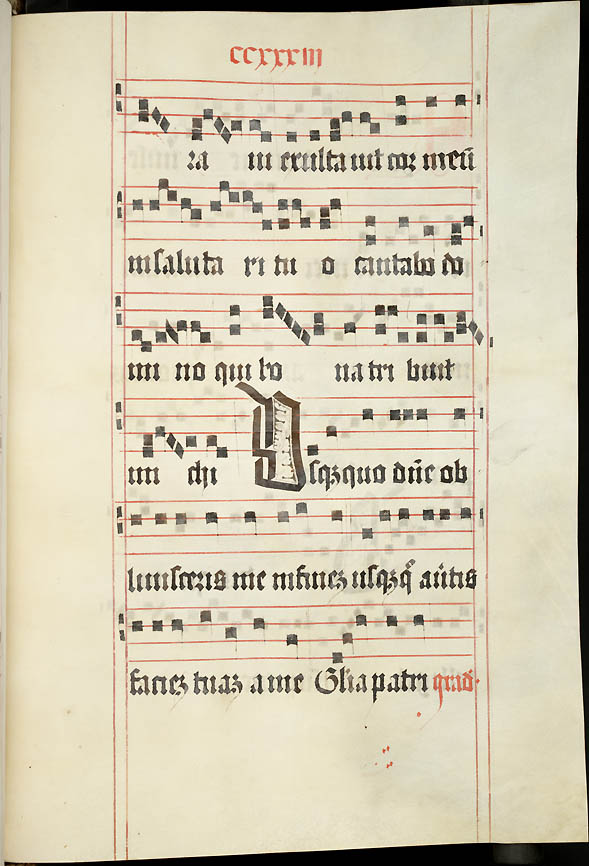 ccxxxiii
ra ui exulta uit cor meū
in saluta ri tu o cantabo do
mi no qui bo na tri buit
mi chi Usqꝫquo dn̄e ob
liuisceris me in fineꝫ usqꝫq̊ au̇tis
facieꝫ tuaꝫ a me Gl̄ia patri grad̄.